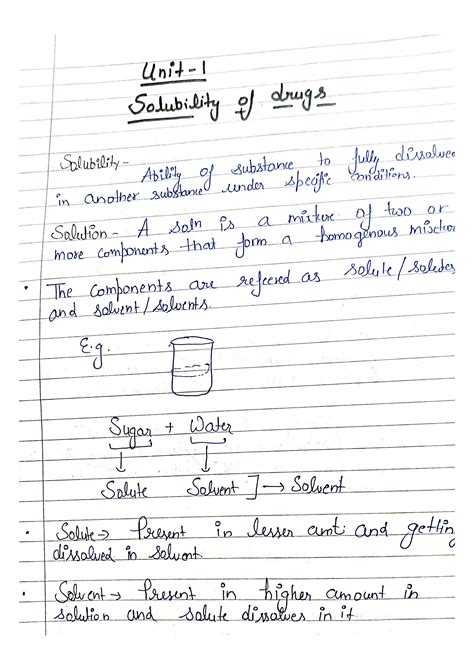 Unit-1
Solubility of drugs
Solubility - Ability of substance to fully dissolve
in another substance under specific conditions.
Solution - A soln is a mixture of two or
more components that form a homogenous
• The components are refered as solute/
and solvent/solvents.
E.g.
Sugar + Water
Solute Solvent ] → Solvent
• Solute → Present in lesser amt: and getting
dissolved in solvent.
• Solvent → Present in higher amount in
solution and solute dissolves in it.